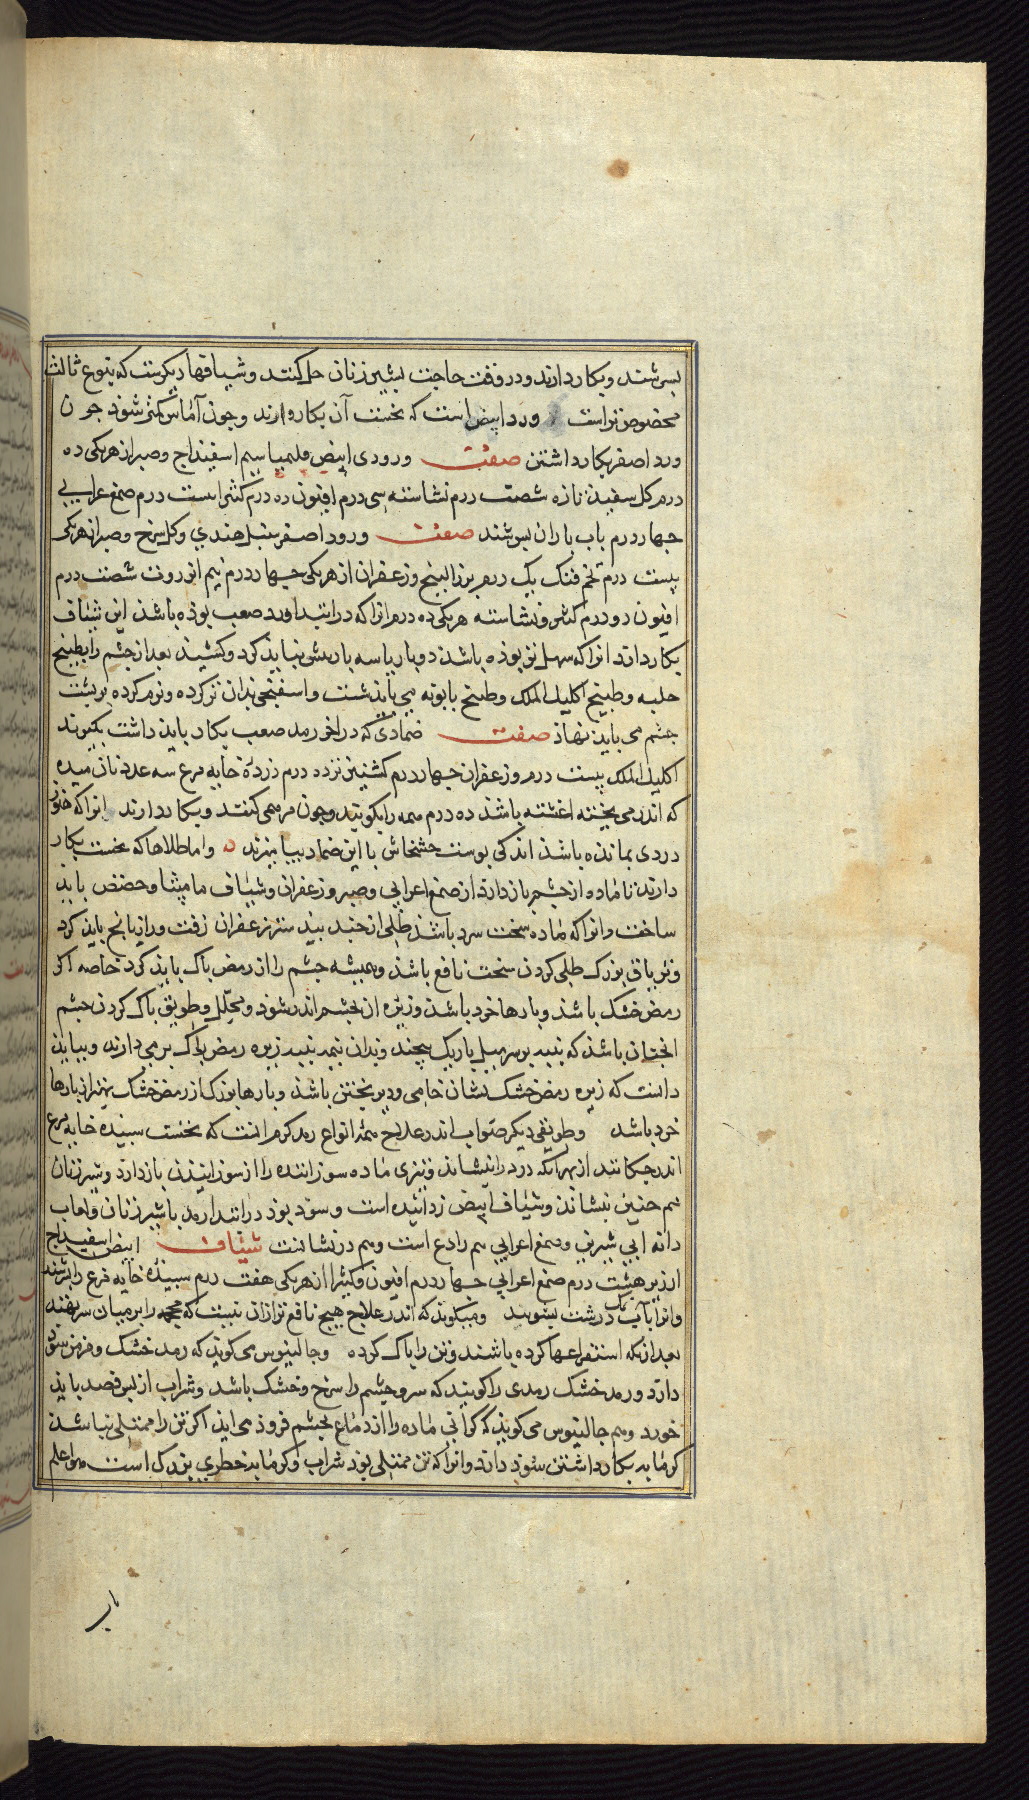 بسرشند و بکار دارند و در وقت حاجت بشیر زنان حل کنند و شیافها دیگرست که بنوع ثالث
مخصوص تر است ورد ابیض است که نخست آن بکار دارند و جون آماس کمتر شوذ جون
ورد اصفر بکار داشتن صفت ورودی ابیض قلیمیا سیم اسفیذاج و صبر از هریکی ده
درم کل سفیذ تازه شصت درم نشاسته سی درم افیون ده درم کثیرا بیست درم صمغ عرابی
جهار درم باب باران بسرشند صفت ورود اصفر سنبل هندی و کل سرخ و صبر از هریکی
بیست درم تخم فنک یک درم بزر البنج و زعفران از هریکی جهار درم نیم انزروت شصت درم
افیون دو درم کثیرا و نشاسته هریکی ده درم انرا که در ابتدا ورد صعب بوذه باشذ این شیاف
بکار دارد انرا که سهل تر بوذه باشذ دو بار یا سه بار بیش نبایذ کرد و کشیذ بعد از جشم را بطبیخ
حلبه و طبیخ اکلیل الملک و طبیخ بابونه می بایذ شست و اسفنجی بذان تر کرده و نرم کرده بر پشت
جشم می بایذ نهاذ صفت ضمادی که در اخر رمد صعب بکار بایذ داشت بکیرند
اکلیل الملک بیست درم و زعفران جهار درم کشنیز تر ده درم زردهٔ خایه مرغ سه عدد نان میده
که اندر می بخته اغشته باشذ ده درم همه را بکوبند و جون مرهمی کنند و بکار دارند انرا که هنوز
دردی بمانده باشذ اندکی بوست خشخاش با این ضماد بیامیزند و اما طلاها که نخست بکار
دارند تا ماده از جشم باز دارد از صمغ اعرابی و صبر و زعفران و شیاف مامیثا و حضض بایذ
ساخت و انرا که ماده سخت سرد باشذ طلی از جند بیدستر زعفران زفت و رازیانج بایذ کرد
و تریاق بزرک طلی کردن سخت نافع باشذ و همیشه جشم را از رمض باک بایذ کرد خاصه اکر
رمض خشک باشذ و بارها خرد باشذ و زیره ان بجشم اندر شود و بخلد و طریق باک کردن جشم
انجنان باشذ که بنبه بر سر میل باریک بیجند و بدان بنبه زیره رمض باک بر می دارند و ببایذ
دانست که زیره رمض خشک نشان خامی و دیر بختن باشذ و بارها بزرک از رمض خشک بهتر از بارها
خرد باشد و طریقی دیکر صواب اندر علاج همه انواع رمد کرم انست که نخست سبیده خایه مرغ
اندر جکانند از بهر انکه درد را بنشاند و تیزی ماده سوزاننده را از سوزانیذن باز دارد و شیر زنان
هم جنین بنشاند و شیاف ابیض زداینده است و سود بوذ در ابتدا رمد با شیر زنان و لعاب
دانه ابی شیرین و صمغ اعرابی هم رادع است و هم درد نشانست شیاف ابیض اسفیداج
ارزیز هشت درم صمغ اعرابی جهار درم افیون و کثیرا از هریکی هفت درم سبیذه خایه مرغ را بسرشند
و انرا باب نمک درشت بشویند و میکویند که اندر علاج هیج نافع تر از ان نیست که محجمه را بر میان سر نهند
بعد از انکه استفراغها کرده باشند و تن را باک کرده و جالینوس می کوید که رمد خشک و مزمن سود
دارد و رمد خشک رمدی را کویند که سر و جشم را سرخ و خشک باشد و شراب از بس فصد بایذ
خورد و هم جالینوس می کویذ که کرانی ماده را از دماغ بجشم فروذ می ایذ اکر تن را ممتلی نباشذ
کرمابه بکار داشتن سوذ دارد و انرا که تن ممتلی بوذ شراب و کرمابه خطری بزرک است هو اعلم
باب